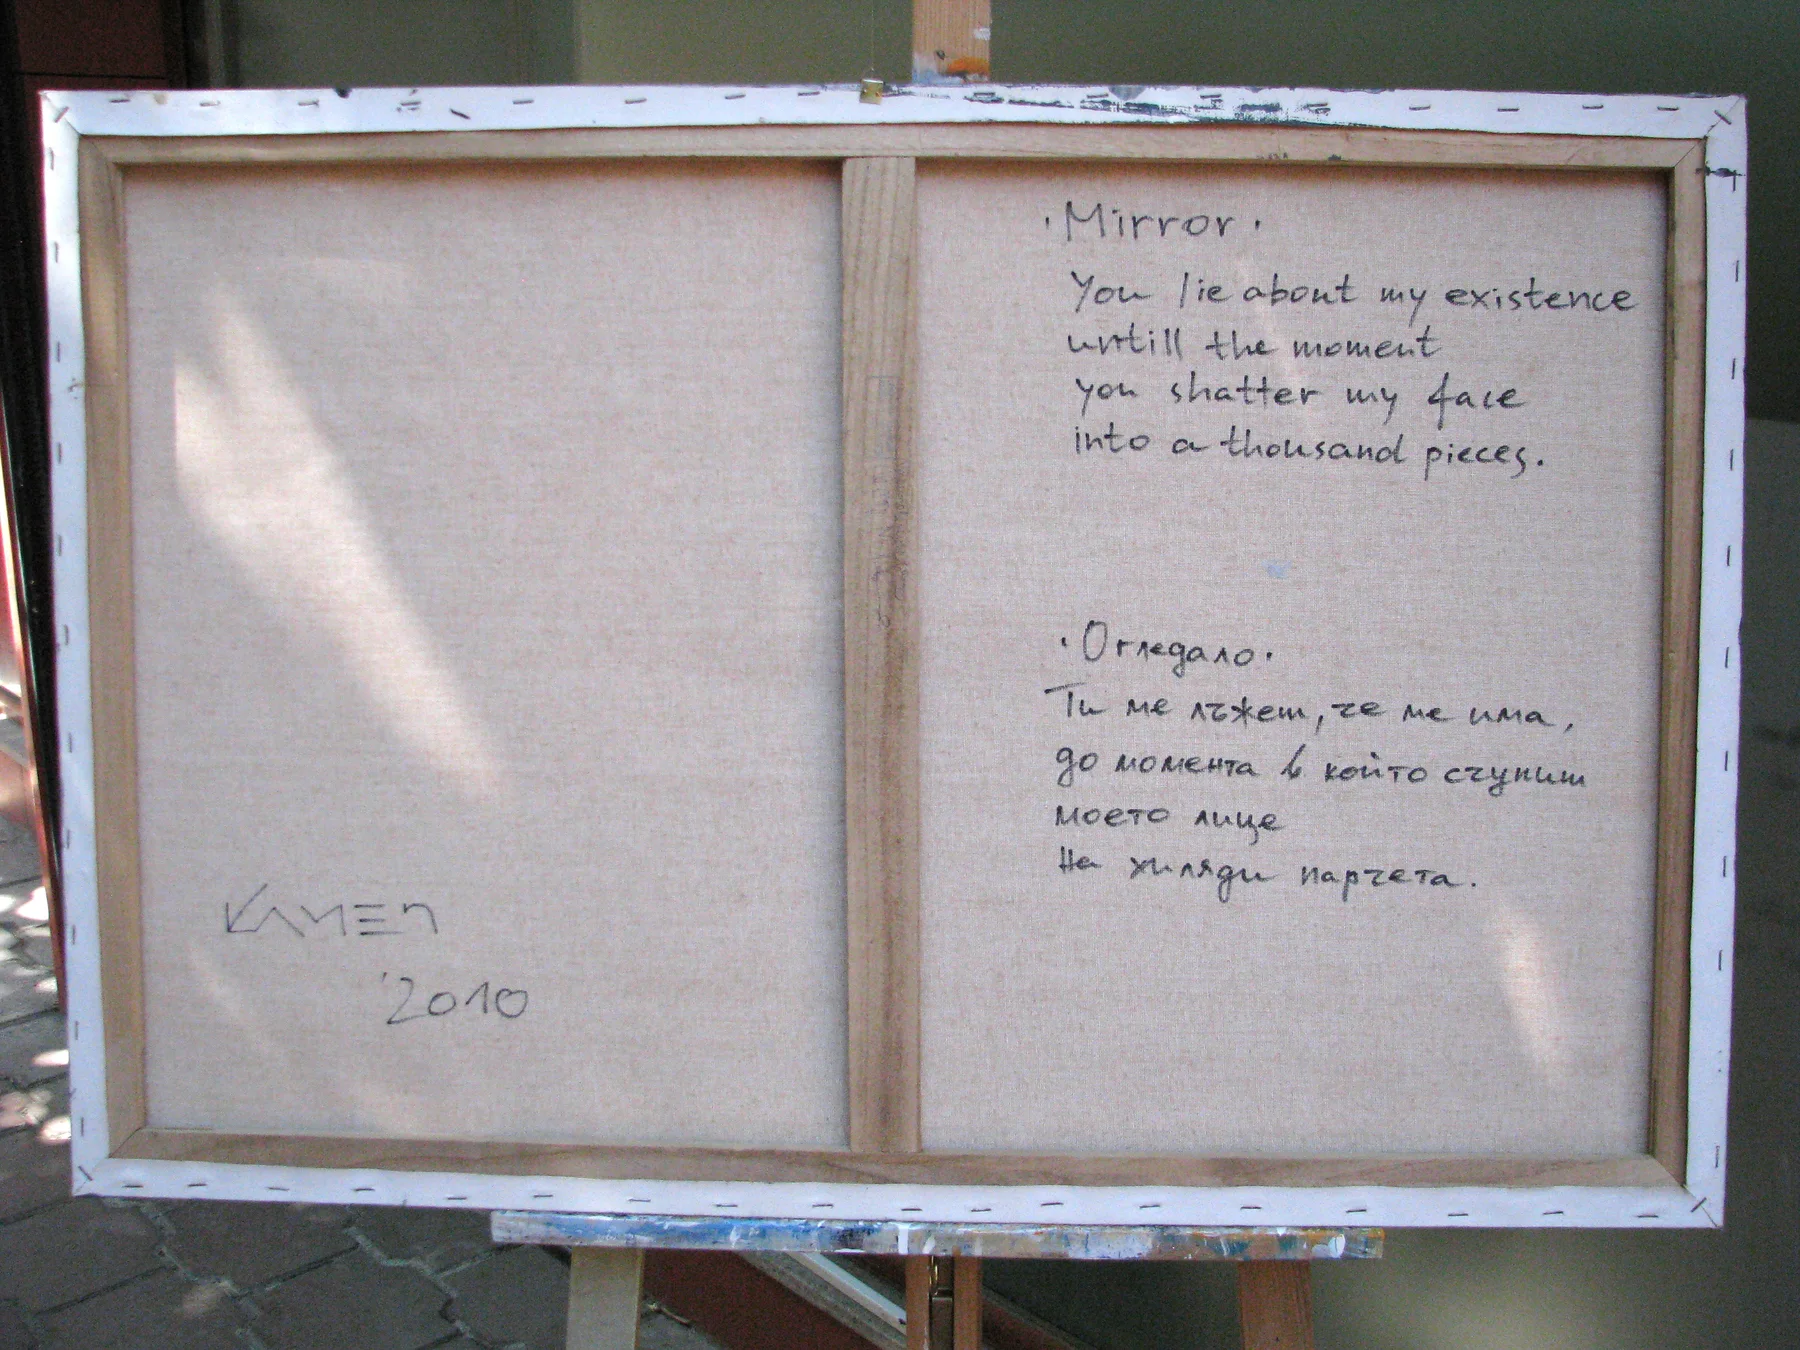 ·Mirror·
You lie about my existence
untill the moment
you shatter my face
into a thousand pieces.
·Огледало·
Ти ме лъжеш, че ме има,
до момента в който счупиш
моето лице
на хиляди парчета.
KAMEN
'2010